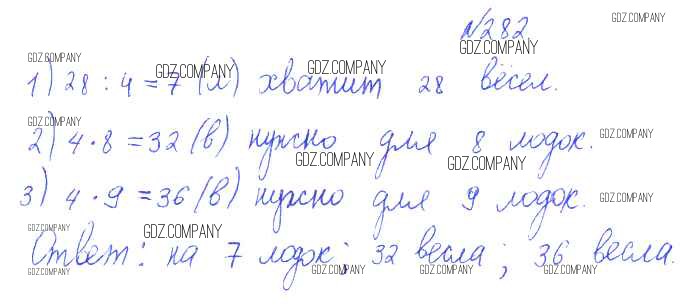 GDZ.COMPANY
№282
GDZ.COMPANY
GDZ.COMPANY GDZ.COMPANY GDZ.COMPANY
1) 28 : 4 = 7 (л) хватит 28 вёсел.
GDZ.COMPANY
2) 4 · 8 = 32 (в) нужно для 8 лодок. GDZ.COMPANY
GDZ.COMPANY GDZ.COMPANY
3) 4 · 9 = 36 (в) нужно для 9 лодок. GDZ.COMPANY
GDZ.COMPANY GDZ.COMPANY
Ответ: на 7 лодок; 32 весла; 36 весла.
GDZ.COMPANY GDZ.COMPANY GDZ.COMPANY GDZ.COMPANY